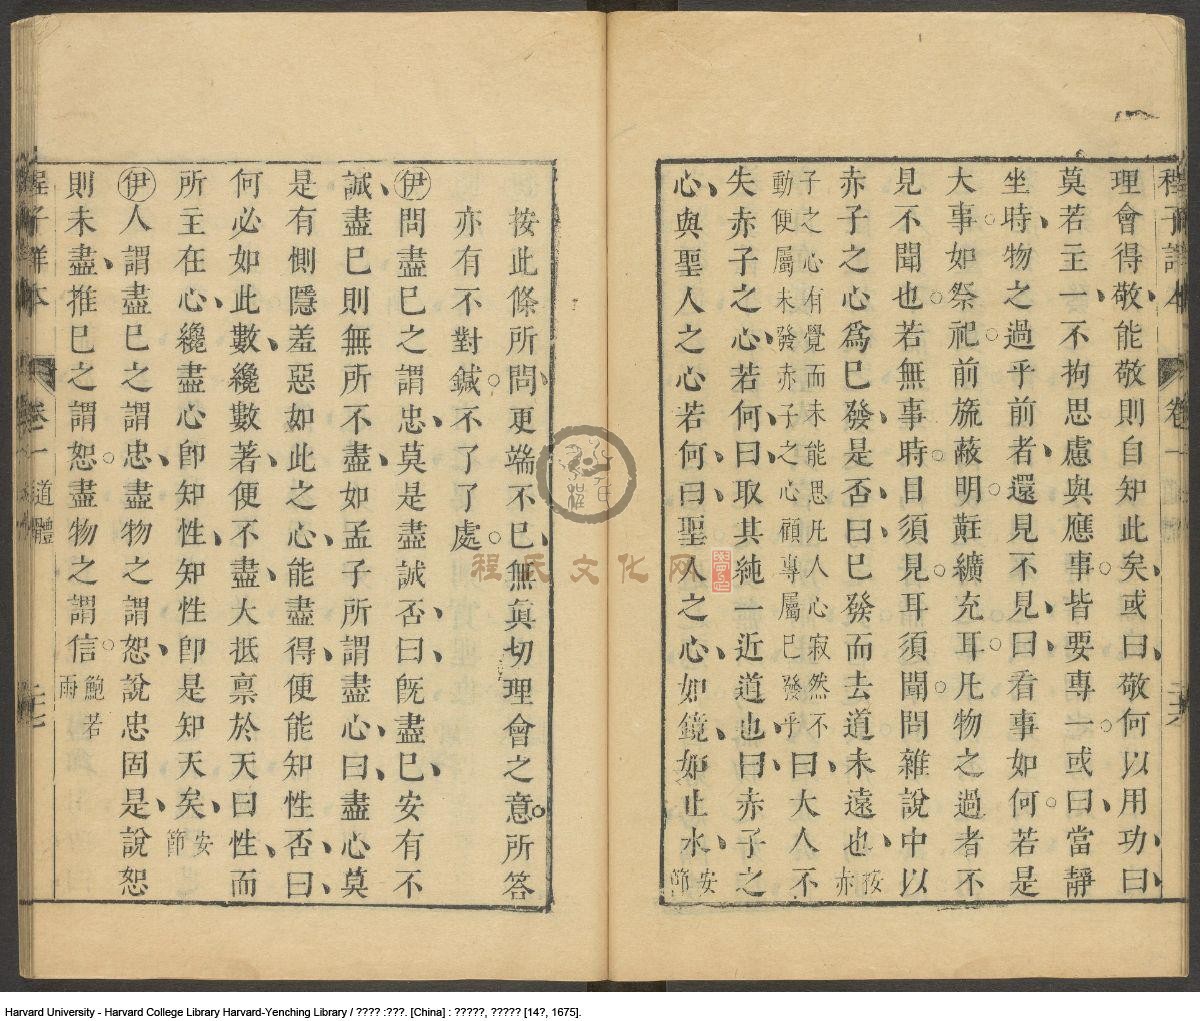 程子詳本
卷一
理會得敬能敬則自知此矣或曰敬何以用功曰
莫若主一不拘思慮與應事皆要專一或曰當靜
坐時物之過乎前者還見不見曰看事如何若是
大事如祭祀前旒蔽明黈纊充耳凡物之過者不
見不聞也若無事時目須見耳須聞問雜說中以
赤子之心爲已發是否曰已發而去道未遠也按赤
子之心有覺而未能思凡人心寂然不
動便屬未發赤子之心顧專屬已發乎曰大人不
失赤子之心若何曰取其純一近道也曰赤子之
心與聖人之心若何曰聖人之心如鏡如止水安節
按此條所問更端不已無眞切理會之意所答
亦有不對鍼不了了處
伊問盡已之謂忠莫是盡誠否曰旣盡已安有不
誠盡已則無所不盡如孟子所謂盡心曰盡心莫
是有惻隱羞惡如此之心能盡得便能知性否曰
何必如此數纔數著便不盡大抵禀於天曰性而
所主在心纔盡心卽知性知性卽是知天矣安節
伊人謂盡已之謂忠盡物之謂恕說忠固是說恕
則未盡推已之謂恕盡物之謂信鮑若雨
程子詳本
卷一
道體
二十七
程氏文化网
Harvard University - Harvard College Library Harvard-Yenching Library / ???? :???. [China] : ?????, ????? [14?, 1675].